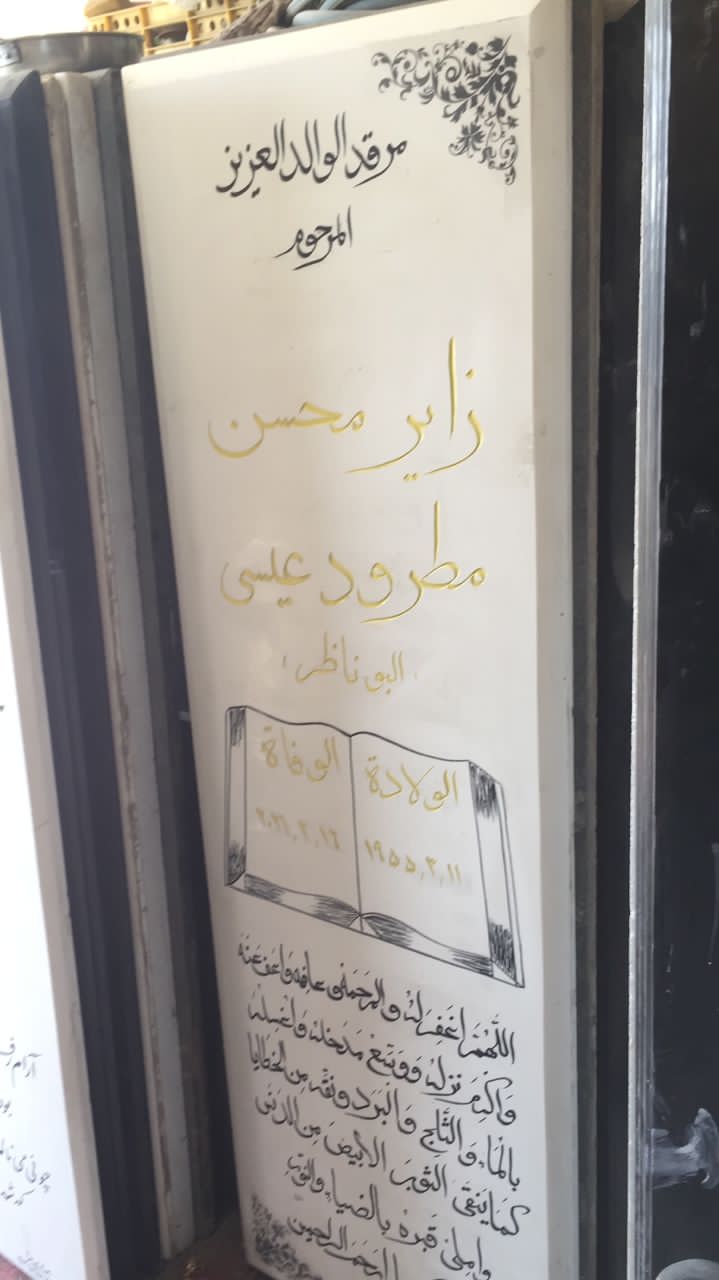 مرقد الوالد العزيز
المرحوم
زاير محسن
مطرود عيسى
البو ناظر
الولادة
١٩٥٥,٣,١١
الوفاة
٢٠٢٦,٢,١٦
اللّهُمَّ اغفِر لهُ والرحَمهُ وعافِهِ واعَفُ عَنه
وَاكْرِمَ نزلهُ وَوَسِعْ مَدخلهُ واغسِلهُ
بالمَاءِ وَالثَّلجِ وَالبَرَد ونقّهِ مِن الخَطايا
كمَا يُنقى الثوبَ الأبيضَ مِن الدَنسْ
واملئ قَبرهُ بالضياءِ والنور
الرحمَ الراحمين
آرام